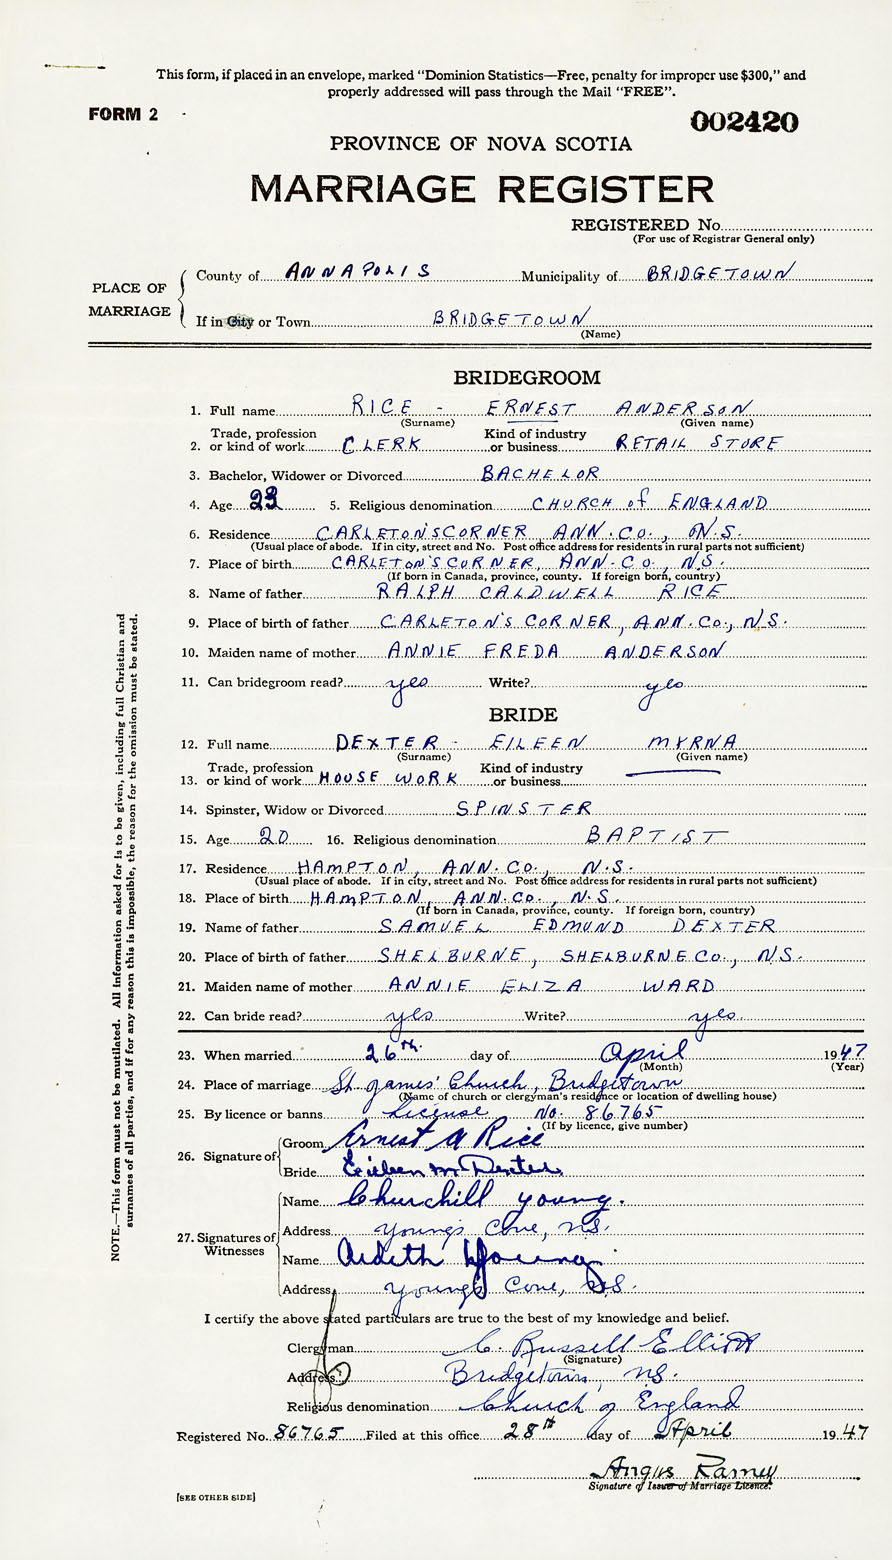 This form, if placed in an envelope, marked "Dominion Statistics—Free, penalty for improper use $300," and
properly addressed will pass through the Mail "FREE".
FORM 2
002420
PROVINCE OF NOVA SCOTIA
MARRIAGE REGISTER
REGISTERED No.
(For use of Registrar General only)
PLACE OF MARRIAGE
County of ANNAPOLIS Municipality of BRIDGETOWN
If in City or Town BRIDGETOWN
(Name)
BRIDEGROOM
1. Full name RICE - ERNEST ANDERSON
(Surname) (Given name)
2. Trade, profession or kind of work CLERK Kind of industry or business RETAIL STORE
3. Bachelor, Widower or Divorced BACHELOR
4. Age 23 5. Religious denomination CHURCH of ENGLAND
6. Residence CARLETON'S CORNER ANN. CO., N.S.
(Usual place of abode. If in city, street and No. Post office address for residents in rural parts not sufficient)
7. Place of birth CARLETON'S CORNER, ANN. CO., N.S.
(If born in Canada, province, county. If foreign born, country)
8. Name of father RALPH CALDWELL RICE
9. Place of birth of father CARLETON'S CORNER, ANN. CO., N.S.
10. Maiden name of mother ANNIE FREDA ANDERSON
11. Can bridegroom read? yes Write? yes
BRIDE
12. Full name DEXTER - EILEEN MYRNA
(Surname) (Given name)
13. Trade, profession or kind of work HOUSE WORK Kind of industry or business
14. Spinster, Widow or Divorced SPINSTER
15. Age 20 16. Religious denomination BAPTIST
17. Residence HAMPTON, ANN. CO., N.S.
(Usual place of abode. If in city, street and No. Post office address for residents in rural parts not sufficient)
18. Place of birth HAMPTON, ANN. CO., N.S.
(If born in Canada, province, county. If foreign born, country)
19. Name of father SAMUEL EDMUND DEXTER
20. Place of birth of father SHELBURNE, SHELBURNE CO., N.S.
21. Maiden name of mother ANNIE ELIZA WARD
22. Can bride read? yes Write? yes.
23. When married 26th. day of April 1947
(Month) (Year)
24. Place of marriage St. James' Church, Bridgetown
(Name of church or clergyman's residence or location of dwelling house)
25. By licence or banns License No. 86765
(If by licence, give number)
26. Signature of Groom Ernest A Rice
Bride Eileen M Dexter
27. Signatures of Witnesses
Name Churchill Young.
Address Young's Cove, N.S.
Name Ardith Young
Address Young's Cove, N.S.
I certify the above stated particulars are true to the best of my knowledge and belief.
Clergyman C. Russell Elliott
(Signature)
Address Bridgetown, N.S.
Religious denomination Church of England
Registered No. 86765 Filed at this office 28th day of April 1947
Angus Ramey
Signature of Issuer of Marriage Licence.
[SEE OTHER SIDE]
NOTE.—This form must not be mutilated. All Information asked for is to be given, including full Christian and
surnames of all parties, and if for any reason this is impossible, the reason for the omission must be stated.